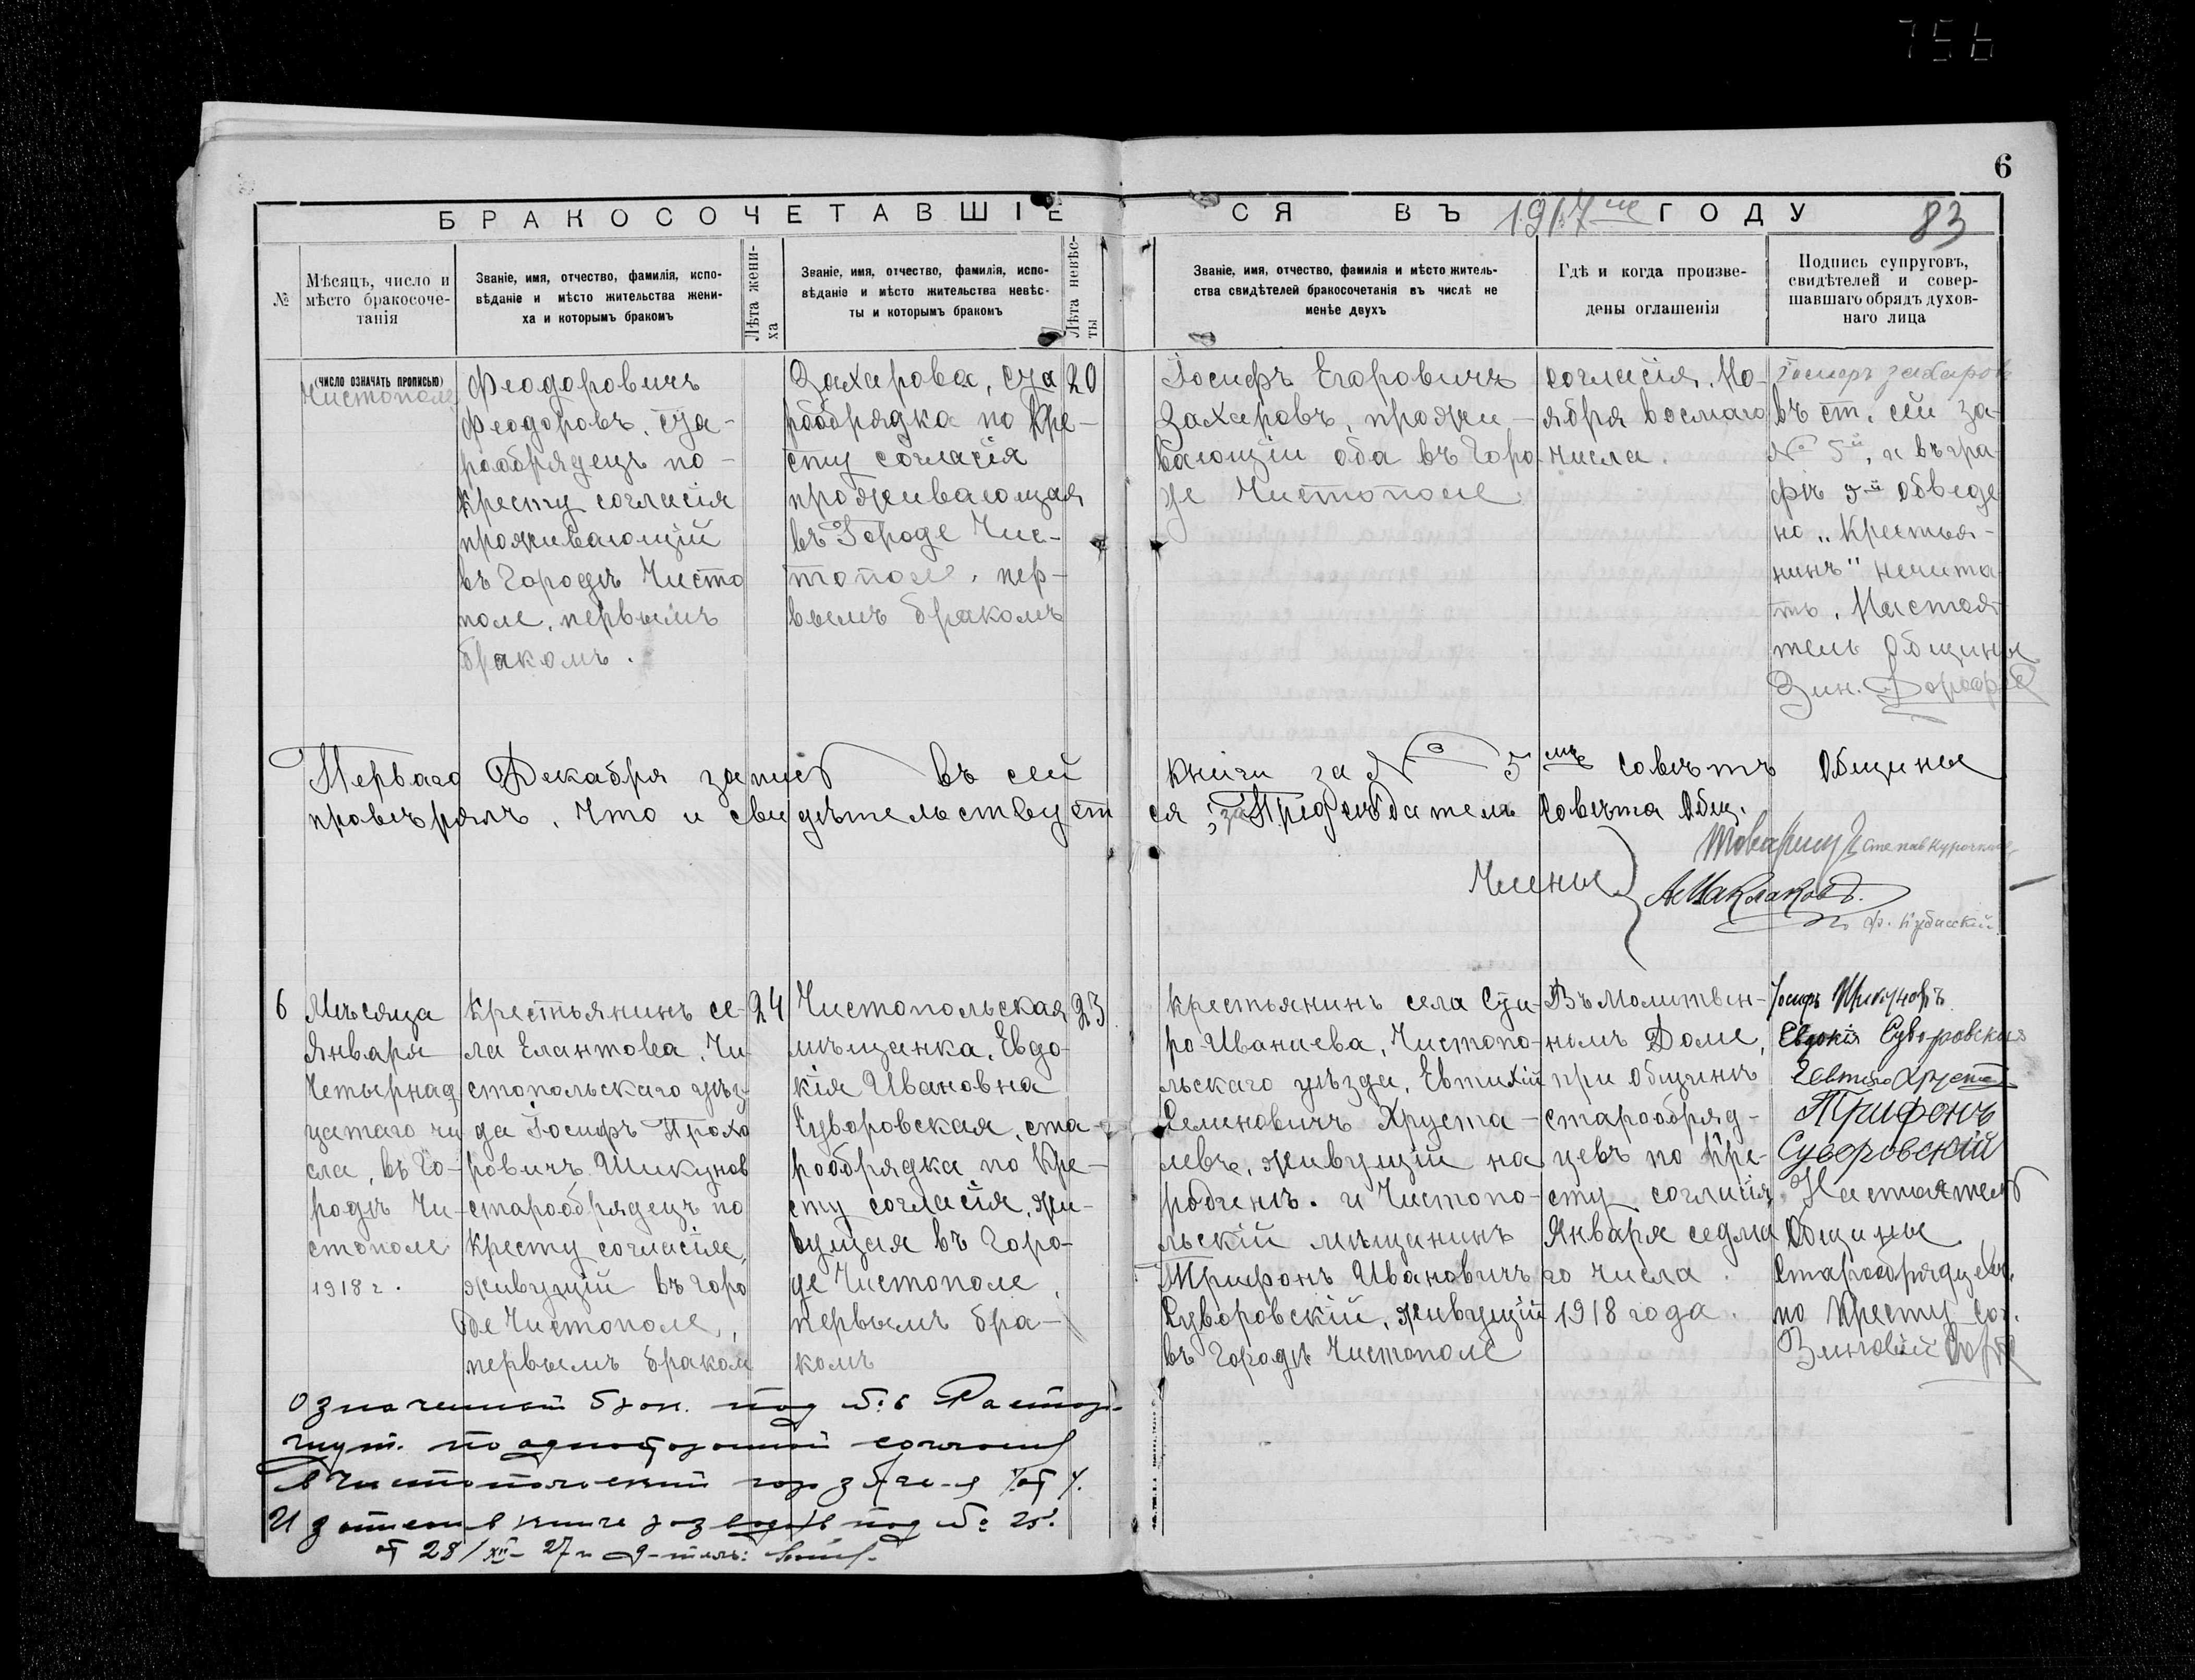 756
6
БРАКОСОЧЕТАВШІЕСЯ ВЪ 1917 ГОДУ
83
№
Мѣсяцъ, число и
мѣсто бракосоче-
танія
Званіе, имя, отчество, фамилія, испо-
вѣданіе и мѣсто жительства жени-
ха и которымъ бракомъ
Лѣта жени-
ха
Званіе, имя, отчество, фамилія, испо-
вѣданіе и мѣсто жительства невѣс-
ты и которымъ бракомъ
Лѣта невѣс-
ты
Званіе, имя, отчество, фамилія и мѣсто житель-
ства свидѣтелей бракосочетанія въ числѣ не
менѣе двухъ
Гдѣ и когда произве-
дены оглашенія
Подпись супруговъ,
свидѣтелей и совер-
шавшаго обрядъ духов-
наго лица
(число означать прописью)
Чистополе
Феодоровичъ
Феодоровъ, ста-
рообрядецъ по-
кресту согласія
проживающій
въ Городѣ Чисто
поле, первымъ
бракомъ.
Захарова, ста
рообрядка по Кре-
сту согласія
проживающая
въ Городе Чис-
тополе, пер-
вымъ бракомъ
20
Іосифъ Егоровичъ
Захаровъ, прожи-
вающіи оба въ Горо
де Чистополе
согласія, Но-
ября восмаго
числа.
Іосифъ Захаров
въ ст. сей за-
№ 5й, и въ гра-
фѣ 3-й обведе
но „Крестья-
нинъ" нечита
ть. Настоя
тель Общины
Зин.
Перваго Декабря запись въ сей книги за № 5мъ Совѣтъ Общины
провѣрялъ, что и свидѣтельствуется: за Председателя Совѣта Общ.
Товарищ Степан Курочкин
Члены А Маклаковъ.
Ф. Кубасскій
6
Мѣсяца
Января
Четырнад
цатаго чи
сла, въ Го-
родѣ Чи-
стополе
1918 г.
Крестьянинъ се-
ла Елантова, Чи-
стопольскаго уѣз-
да Іосифъ Прохо
ровичъ Шикунов
старообрядецъ по
Кресту согласія,
живущій въ горо
де Чистополе,
первымъ браком
24
Чистопольская
мѣщанка, Евдо-
кія Ивановна
Суворовская, ста-
рообрядка по Кре-
сту согласія, жи-
вущая въ Горо-
де Чистополе,
первымъ бра-
комъ
23
крестьянинъ села Ста-
ро-Иванаева, Чистопо-
льскаго уѣзда, Евтихій
Семеновичъ Хруста-
левъ, живущій на
родинѣ. и Чистопо-
льскій мѣщанинъ
Трифонъ Ивановичъ
Суворовскій, живущій
въ Городѣ Чистополе
Въ Молитвен-
номъ Доме,
при Общинѣ
старообряд-
цевъ по Кре-
сту согласія,
Января седма
го числа.
1918 года.
Іосифъ Шикуновъ
Евдокія Суворовская
Трифонъ
Суворовскій
Настоятель
Общины
Старообрядцевъ
по Кресту сог.
Зиновій
Означенный брак под № 6 Растор-
гнут. по односторонней
в Чистопольский
И записан в книге развода под № 25.
от 28/XII-27 г.